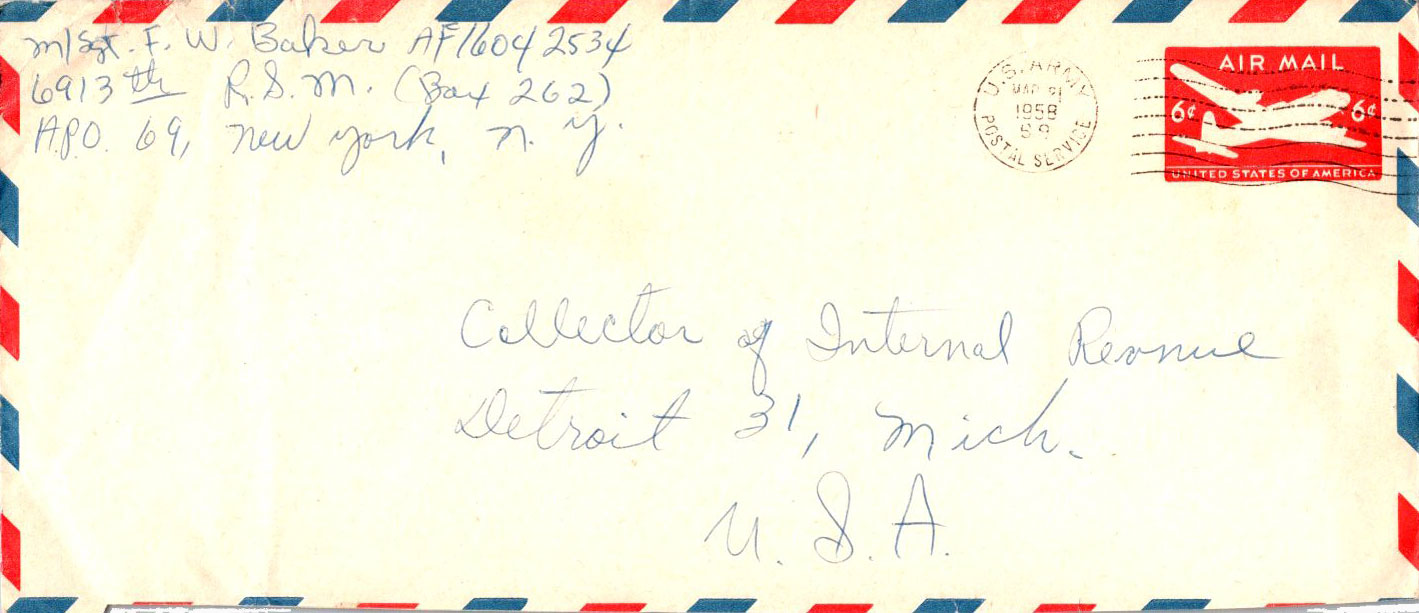 M/Sgt. F. W. Baker AF16042534
6913th R.S.M. (Box 262)
A.P.O. 69, New York, N. Y.
U.S. ARMY
MAR 21
1958
POSTAL SERVICE
AIR MAIL
6¢ 6¢
UNITED STATES OF AMERICA
Collector of Internal Revenue
Detroit 31, Mich.
U. S. A.